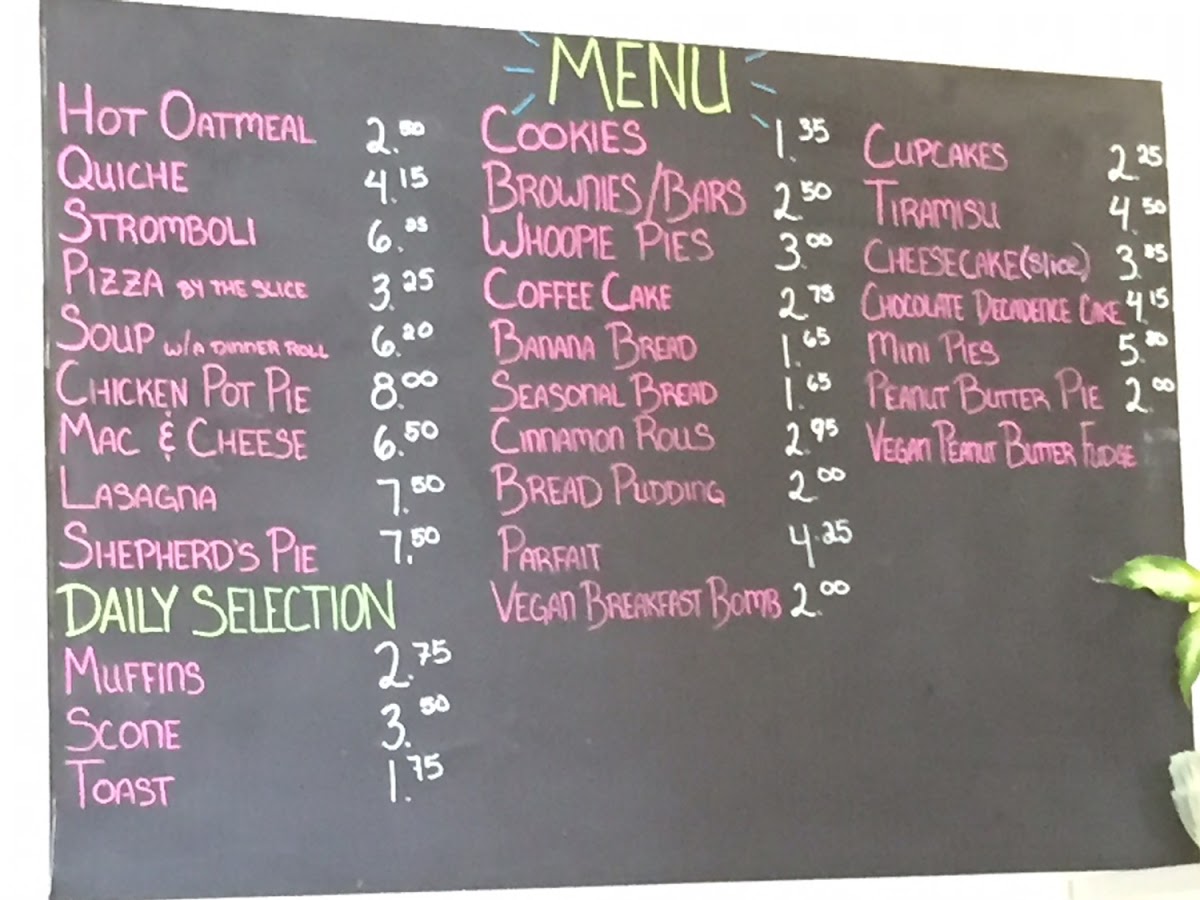 MENU
HOT OATMEAL 2.50
QUICHE 4.15
STROMBOLI 6.
PIZZA BY THE SLICE 3.25
SOUP W/A DINNER ROLL 6.20
CHICKEN POT PIE 8.00
MAC & CHEESE 6.50
LASAGNA 7.50
SHEPHERD'S PIE 7.50
DAILY SELECTION
MUFFINS 2.75
SCONE 3.50
TOAST 1.75
COOKIES 1.35
BROWNIES/BARS 2.50
WHOOPIE PIES 3.00
COFFEE CAKE 2.75
BANANA BREAD 1.65
SEASONAL BREAD 1.65
CINNAMON ROLLS 2.95
BREAD PUDDING 2.00
PARFAIT 4.25
VEGAN BREAKFAST BOMB 2.00
CUPCAKES 2.25
TIRAMISU 4.50
CHEESECAKE (slice) 3.
CHOCOLATE DECADENCE CAKE 4.15
MINI PIES 5.
PEANUT BUTTER PIE 2.00
VEGAN PEANUT BUTTER FUDGE